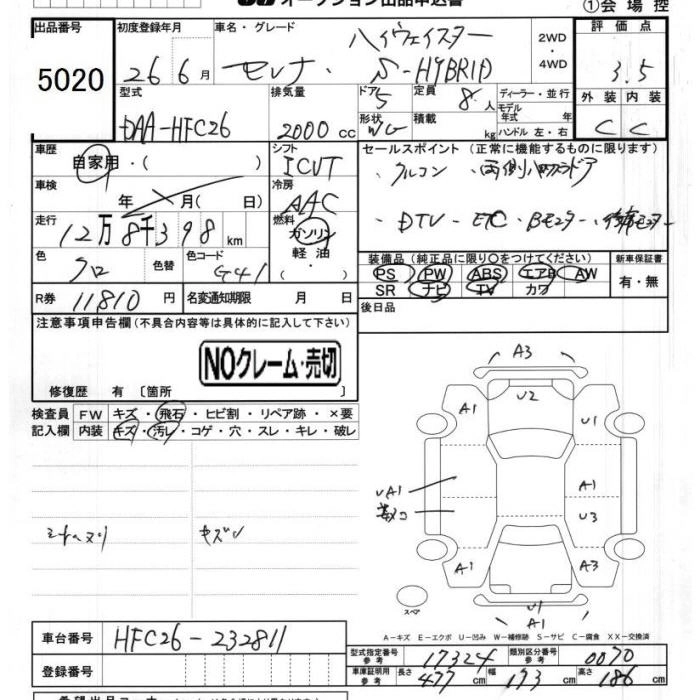 オークション出品申込書
①会場控
出品番号 初度登録年月 車名・グレード 評価点
5020
26 6月 セレナ・ハイウェイスター S-HYBRID
2WD・4WD
3.5
型式 排気量 ドア 定員 ディーラー・並行 外装 内装
DAA-HFC26 2000cc 5 8人
形状 積載 モデル年式 年
WG kg ハンドル 左・右
C C
車歴 シフト セールスポイント (正常に機能するものに限ります)
自家用・( ) ICVT
・クルコン ・両側パワスラドア
車検 冷房
年 月( 日) AAC
・DTV - ETC・Bモニター
走行 燃料
12万8千398km ガソリン・軽油・
色 色替 色コード
クロ G41
装備品 (純正品に限り○をつけてください) 新車保証書
PS PW ABS エアB AW 有・無
SR ナビ TV カワ
R券 11810円 名変通知期限 月 日
後日品
注意事項申告欄 (不具合内容等は具体的に記入して下さい)
NOクレーム・売切
修復歴 有 〔箇所 〕
検査員 FW キズ・飛石・ヒビ割・リペア跡・×要
記入欄 内装 キズ・汚レ・コゲ・穴・スレ・キレ・破レ
キズ
A3
A1 U2 U1
UA1 A1
U3
A1 A3
U1
A1
スペア
A-キズ E-エクボ U-凹み W-補修跡 S-サビ C-腐食 XX-交換済
車台番号 HFC26-232811
登録番号
型式指定番号 参考 17324 類別区分番号 参考 0070
車庫証明用 参考 長さ 477cm 幅 173cm 高さ 186cm